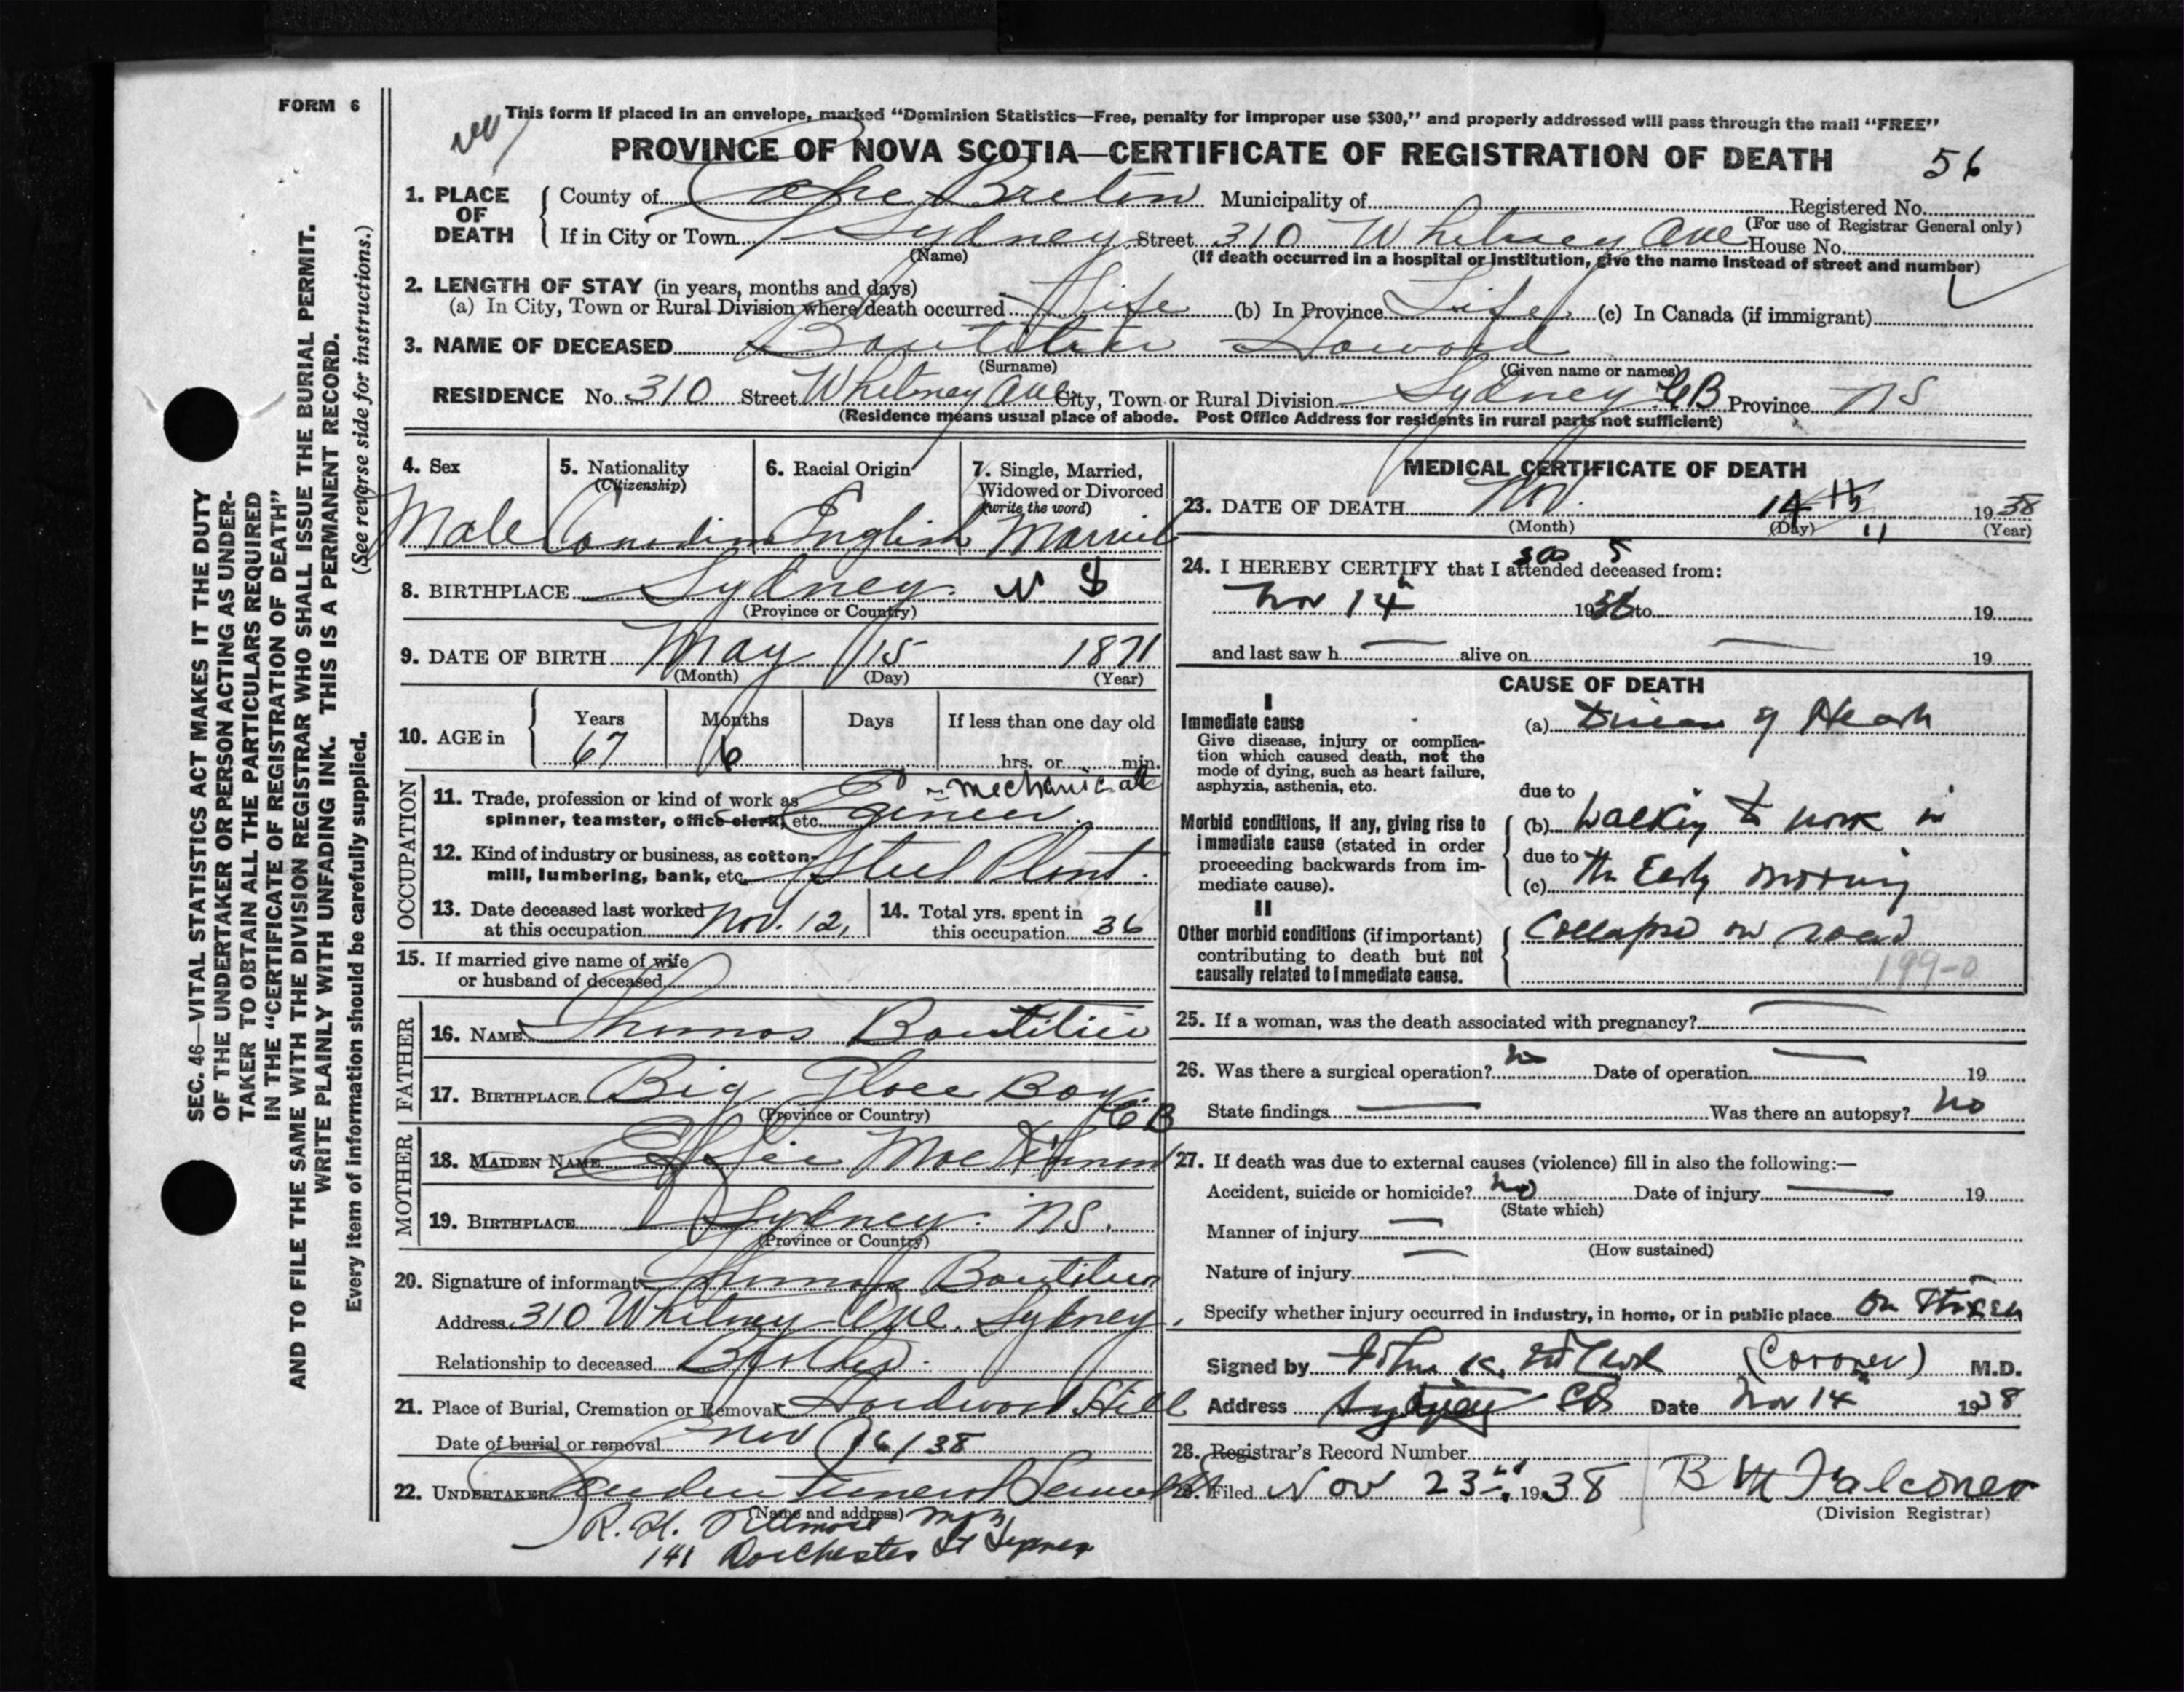 FORM 6
This form if placed in an envelope, marked "Dominion Statistics—Free, penalty for improper use $300," and properly addressed will pass through the mail "FREE"
PROVINCE OF NOVA SCOTIA—CERTIFICATE OF REGISTRATION OF DEATH 56
1. PLACE OF DEATH
County of Cape Breton Municipality of Registered No.
(For use of Registrar General only)
If in City or Town Sydney Street 310 Whitney Ave House No.
(Name) (If death occurred in a hospital or institution, give the name instead of street and number)
2. LENGTH OF STAY (in years, months and days)
(a) In City, Town or Rural Division where death occurred Life (b) In Province Life (c) In Canada (if immigrant)
3. NAME OF DECEASED Boutilier Howard
(Surname) (Given name or names)
RESIDENCE No. 310 Street Whitney Ave City, Town or Rural Division Sydney CB Province NS
(Residence means usual place of abode. Post Office Address for residents in rural parts not sufficient)
4. Sex
Male
5. Nationality
(Citizenship)
Canadian
6. Racial Origin
English
7. Single, Married, Widowed or Divorced
(write the word)
Married
8. BIRTHPLACE Sydney. N S
(Province or Country)
9. DATE OF BIRTH May 15 1871
(Month) (Day) (Year)
10. AGE in
Years Months Days If less than one day old
67 6 hrs. or min.
OCCUPATION
11. Trade, profession or kind of work as spinner, teamster, office clerk, etc. Egineer - mechanical
12. Kind of industry or business, as cotton-mill, lumbering, bank, etc. Steel Plant.
13. Date deceased last worked at this occupation Nov. 12,
14. Total yrs. spent in this occupation 36
15. If married give name of wife
or husband of deceased
FATHER
16. NAME Thomas Boutilier
17. BIRTHPLACE Big Glace Bay. CB
(Province or Country)
MOTHER
18. MAIDEN NAME Effie MacKinnon
19. BIRTHPLACE Sydney. NS.
(Province or Country)
20. Signature of informant Thomas Boutilier
Address 310 Whitney Ave. Sydney.
Relationship to deceased Brother.
21. Place of Burial, Cremation or Removal Hardwood Hill
Date of burial or removal Nov 16/38
22. UNDERTAKER Funeral
(Name and address)
R. H. Mgr
141 Dorchester St Sydney
MEDICAL CERTIFICATE OF DEATH
23. DATE OF DEATH Nov. 14th 1938
(Month) (Day) 11 (Year)
24. I HEREBY CERTIFY that I attended deceased from:
Nov 14th 1938 to 19
and last saw h alive on 19
CAUSE OF DEATH
I
Immediate cause
Give disease, injury or complication which caused death, not the mode of dying, such as heart failure, asphyxia, asthenia, etc.
(a) Disease of Heart
due to
Morbid conditions, if any, giving rise to immediate cause (stated in order proceeding backwards from immediate cause).
(b) Walking to work in
due to
(c) the Early morning
II
Other morbid conditions (if important) contributing to death but not causally related to immediate cause.
Collapse on road
199-0
25. If a woman, was the death associated with pregnancy?
26. Was there a surgical operation? no Date of operation 19
State findings Was there an autopsy? no
27. If death was due to external causes (violence) fill in also the following:—
Accident, suicide or homicide? no Date of injury 19
(State which)
Manner of injury
(How sustained)
Nature of injury
Specify whether injury occurred in industry, in home, or in public place On
Signed by John K. (Coroner) M.D.
Address Sydney CB Date Nov 14th 1938
28. Registrar's Record Number
29. Filed Nov 23rd 1938 B M Falconer
(Division Registrar)
SEC. 46—VITAL STATISTICS ACT MAKES IT THE DUTY
OF THE UNDERTAKER OR PERSON ACTING AS UNDER-
TAKER TO OBTAIN ALL THE PARTICULARS REQUIRED
IN THE "CERTIFICATE OF REGISTRATION OF DEATH"
AND TO FILE THE SAME WITH THE DIVISION REGISTRAR WHO SHALL ISSUE THE BURIAL PERMIT.
WRITE PLAINLY WITH UNFADING INK. THIS IS A PERMANENT RECORD.
Every item of information should be carefully supplied. (See reverse side for instructions.)